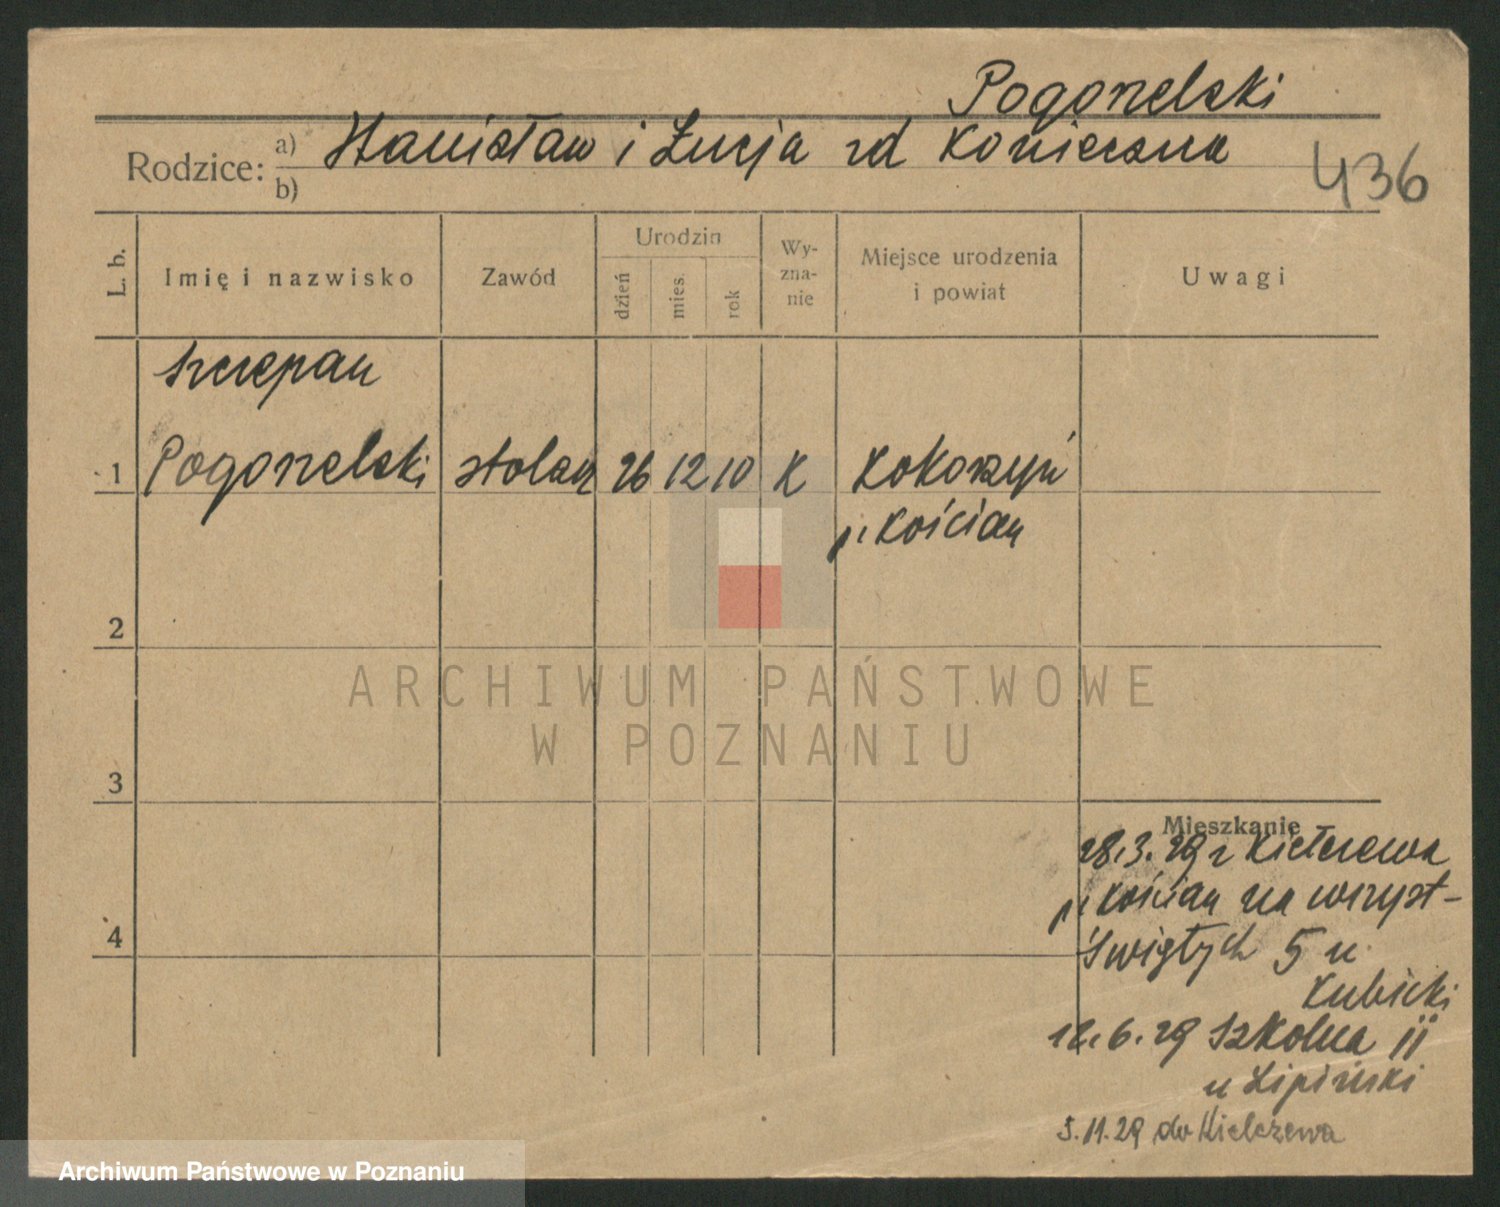 Pogorzelski
Rodzice: a) Stanisław i Łucja zd Konieczna
b)
436
L. b.
Imię i nazwisko
Zawód
Urodzin
dzień
mies.
rok
Wy-
zna-
nie
Miejsce urodzenia
i powiat
Uwagi
Szczepan
1 Pogorzelski stolarz 26 12 10 K Kokorzyń
p. Kościan
2
ARCHIWUM PAŃSTWOWE
W POZNANIU
3
Mieszkanie
28.3.29 z Kiełczewa
p. Kościan na wszyst-
Świętych 5 u
Kubicki
4
12.6.29 Szkolna 11
u Lipiński
5.11.29 do Kiełczewa
Archiwum Państwowe w Poznaniu